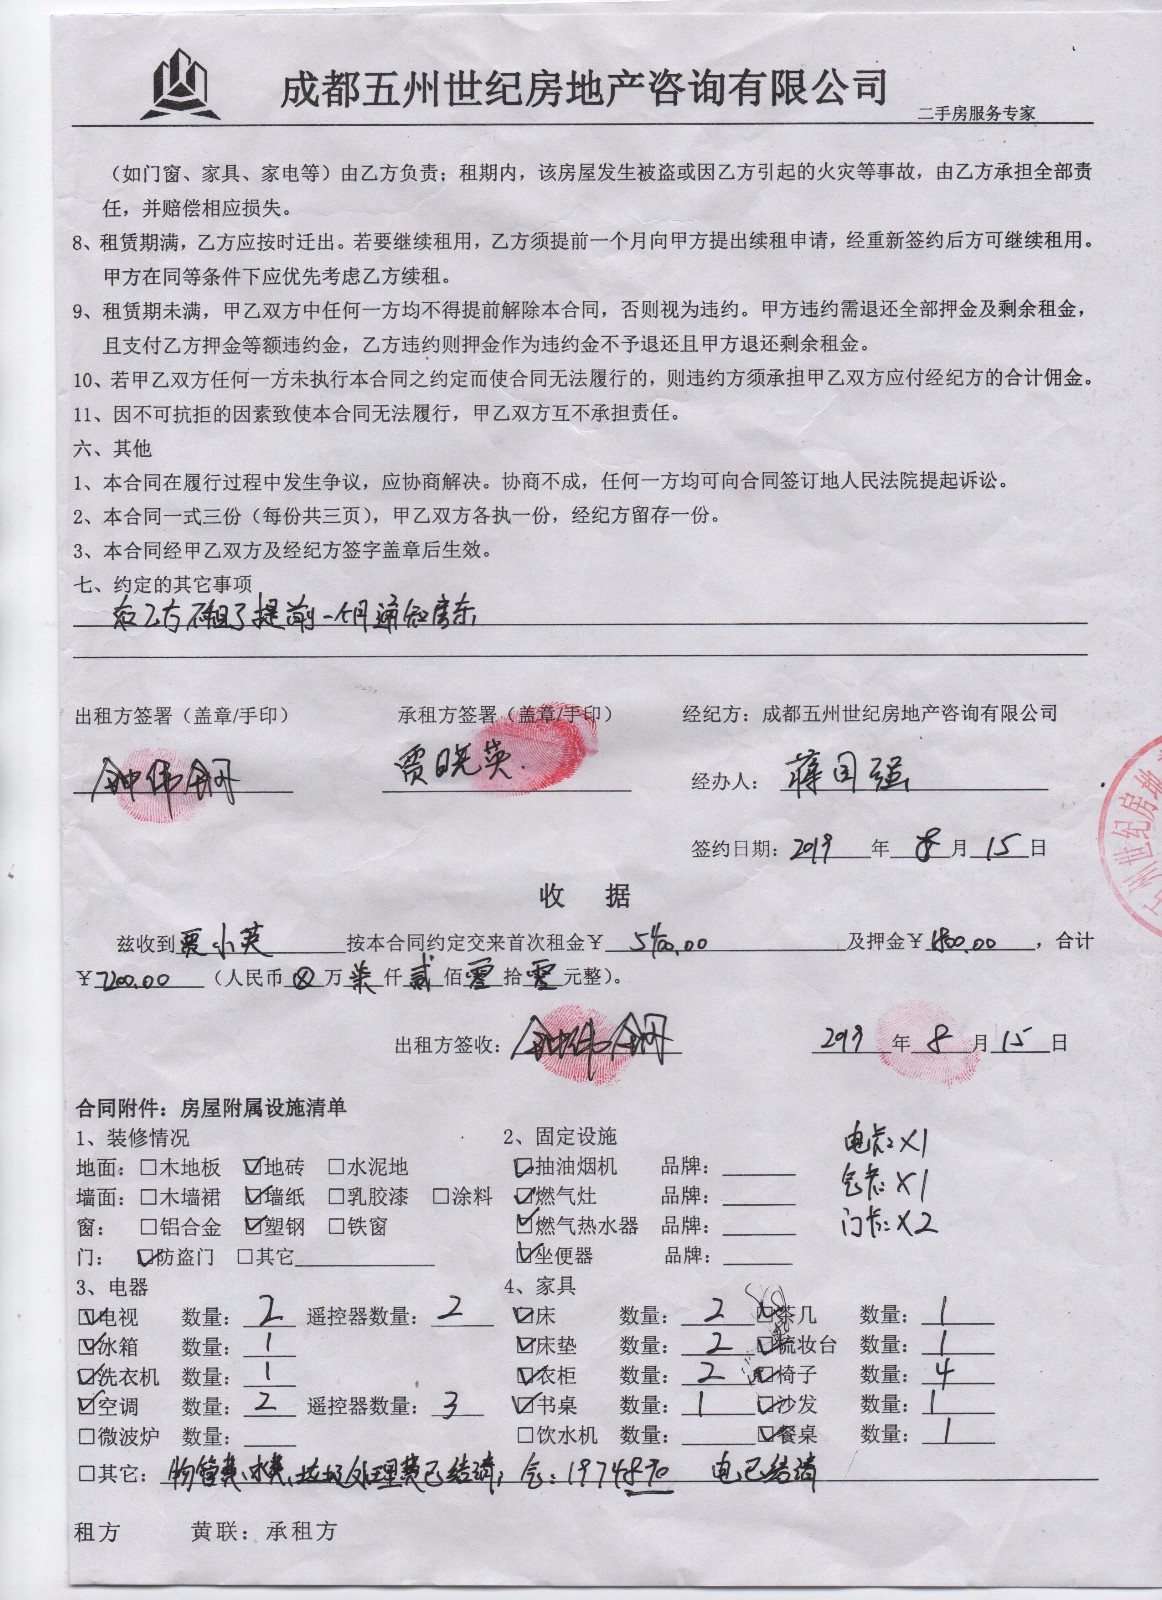 成都五州世纪房地产咨询有限公司
二手房服务专家
（如门窗、家具、家电等）由乙方负责；租期内，该房屋发生被盗或因乙方引起的火灾等事故，由乙方承担全部责
任，并赔偿相应损失。
8、租赁期满，乙方应按时迁出。若要继续租用，乙方须提前一个月向甲方提出续租申请，经重新签约后方可继续租用。
甲方在同等条件下应优先考虑乙方续租。
9、租赁期未满，甲乙双方中任何一方均不得提前解除本合同，否则视为违约。甲方违约需退还全部押金及剩余租金，
且支付乙方押金等额违约金，乙方违约则押金作为违约金不予退还且甲方退还剩余租金。
10、若甲乙双方任何一方未执行本合同之约定而使合同无法履行的，则违约方须承担甲乙双方应付经纪方的合计佣金。
11、因不可抗拒的因素致使本合同无法履行，甲乙双方互不承担责任。
六、其他
1、本合同在履行过程中发生争议，应协商解决。协商不成，任何一方均可向合同签订地人民法院提起诉讼。
2、本合同一式三份（每份共三页），甲乙双方各执一份，经纪方留存一份。
3、本合同经甲乙双方及经纪方签字盖章后生效。
七、约定的其它事项
乙方不租了提前一个月通知房东
出租方签署（盖章/手印） 承租方签署（盖章/手印） 经纪方：成都五州世纪房地产咨询有限公司
钟伟钢 贾晓英 经办人：蒋国强
签约日期：2019年8月15日
五州世纪房地产
收 据
兹收到贾小英按本合同约定交来首次租金￥5400.00及押金￥1800.00，合计
￥7200.00（人民币⊗万柒仟贰佰零拾零元整）。
出租方签收：钟伟钢 2019年8月15日
合同附件：房屋附属设施清单
1、装修情况 2、固定设施 电卡：X1
地面：□木地板 ☑地砖 □水泥地 ☑抽油烟机 品牌：
墙面：□木墙裙 ☑墙纸 □乳胶漆 □涂料 ☑燃气灶 品牌： 气卡：X1
窗： □铝合金 ☑塑钢 □铁窗 ☑燃气热水器 品牌： 门卡：X2
门： ☑防盗门 □其它 ☑坐便器 品牌：
3、电器 4、家具
☑电视 数量：2 遥控器数量：2 ☑床 数量：2 ☑茶几 数量：1
☑冰箱 数量：1 ☑床垫 数量：2 ☑梳妆台 数量：1
☑洗衣机 数量：1 ☑衣柜 数量：2 ☑椅子 数量：4
☑空调 数量：2 遥控器数量：3 ☑书桌 数量：1 ☑沙发 数量：1
□微波炉 数量： □饮水机 数量： ☑餐桌 数量：1
□其它：物管费、水费、垃圾处理费已结清，气：1974.890 电已结清
租方 黄联：承租方